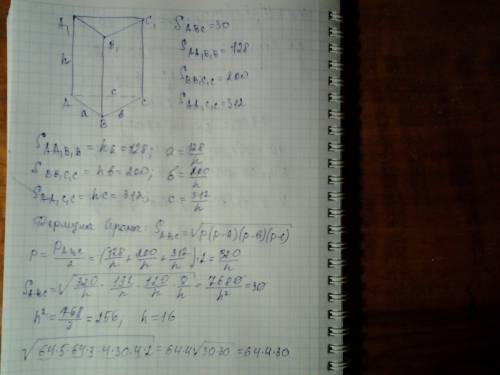 A₁ C₁ S ABC = 30
B₁ S AA₁B₁B = 128
h S BB₁C₁C = 200
A c C S AA₁C₁C = 312
a B b
S AA₁B₁B = ha = 128; a = 128/h
S BB₁C₁C = hb = 200; b = 200/h
S AA₁C₁C = hc = 312; c = 312/h
Формула Герона: S ABC = √p(p-a)(p-b)(p-c)
p = P ABC/2 = (128/h + 200/h + 312/h):2 = 320/h
S ABC = √320/h · 192/h · 120/h · 8/h = 7680/h² = 30
h² = 768/3 = 256, h = 16
√64·5·64·3·4·30·4·2 = 64·4√30·30 = 64·4·30